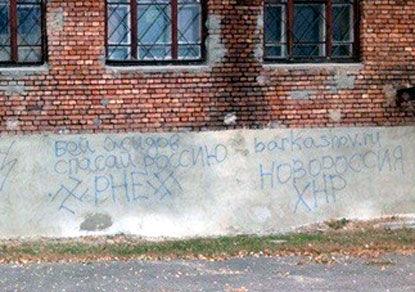 бей жидов
спасай россию
РНЕ
barkashov.ru
НОВОРОССИЯ
ХНР